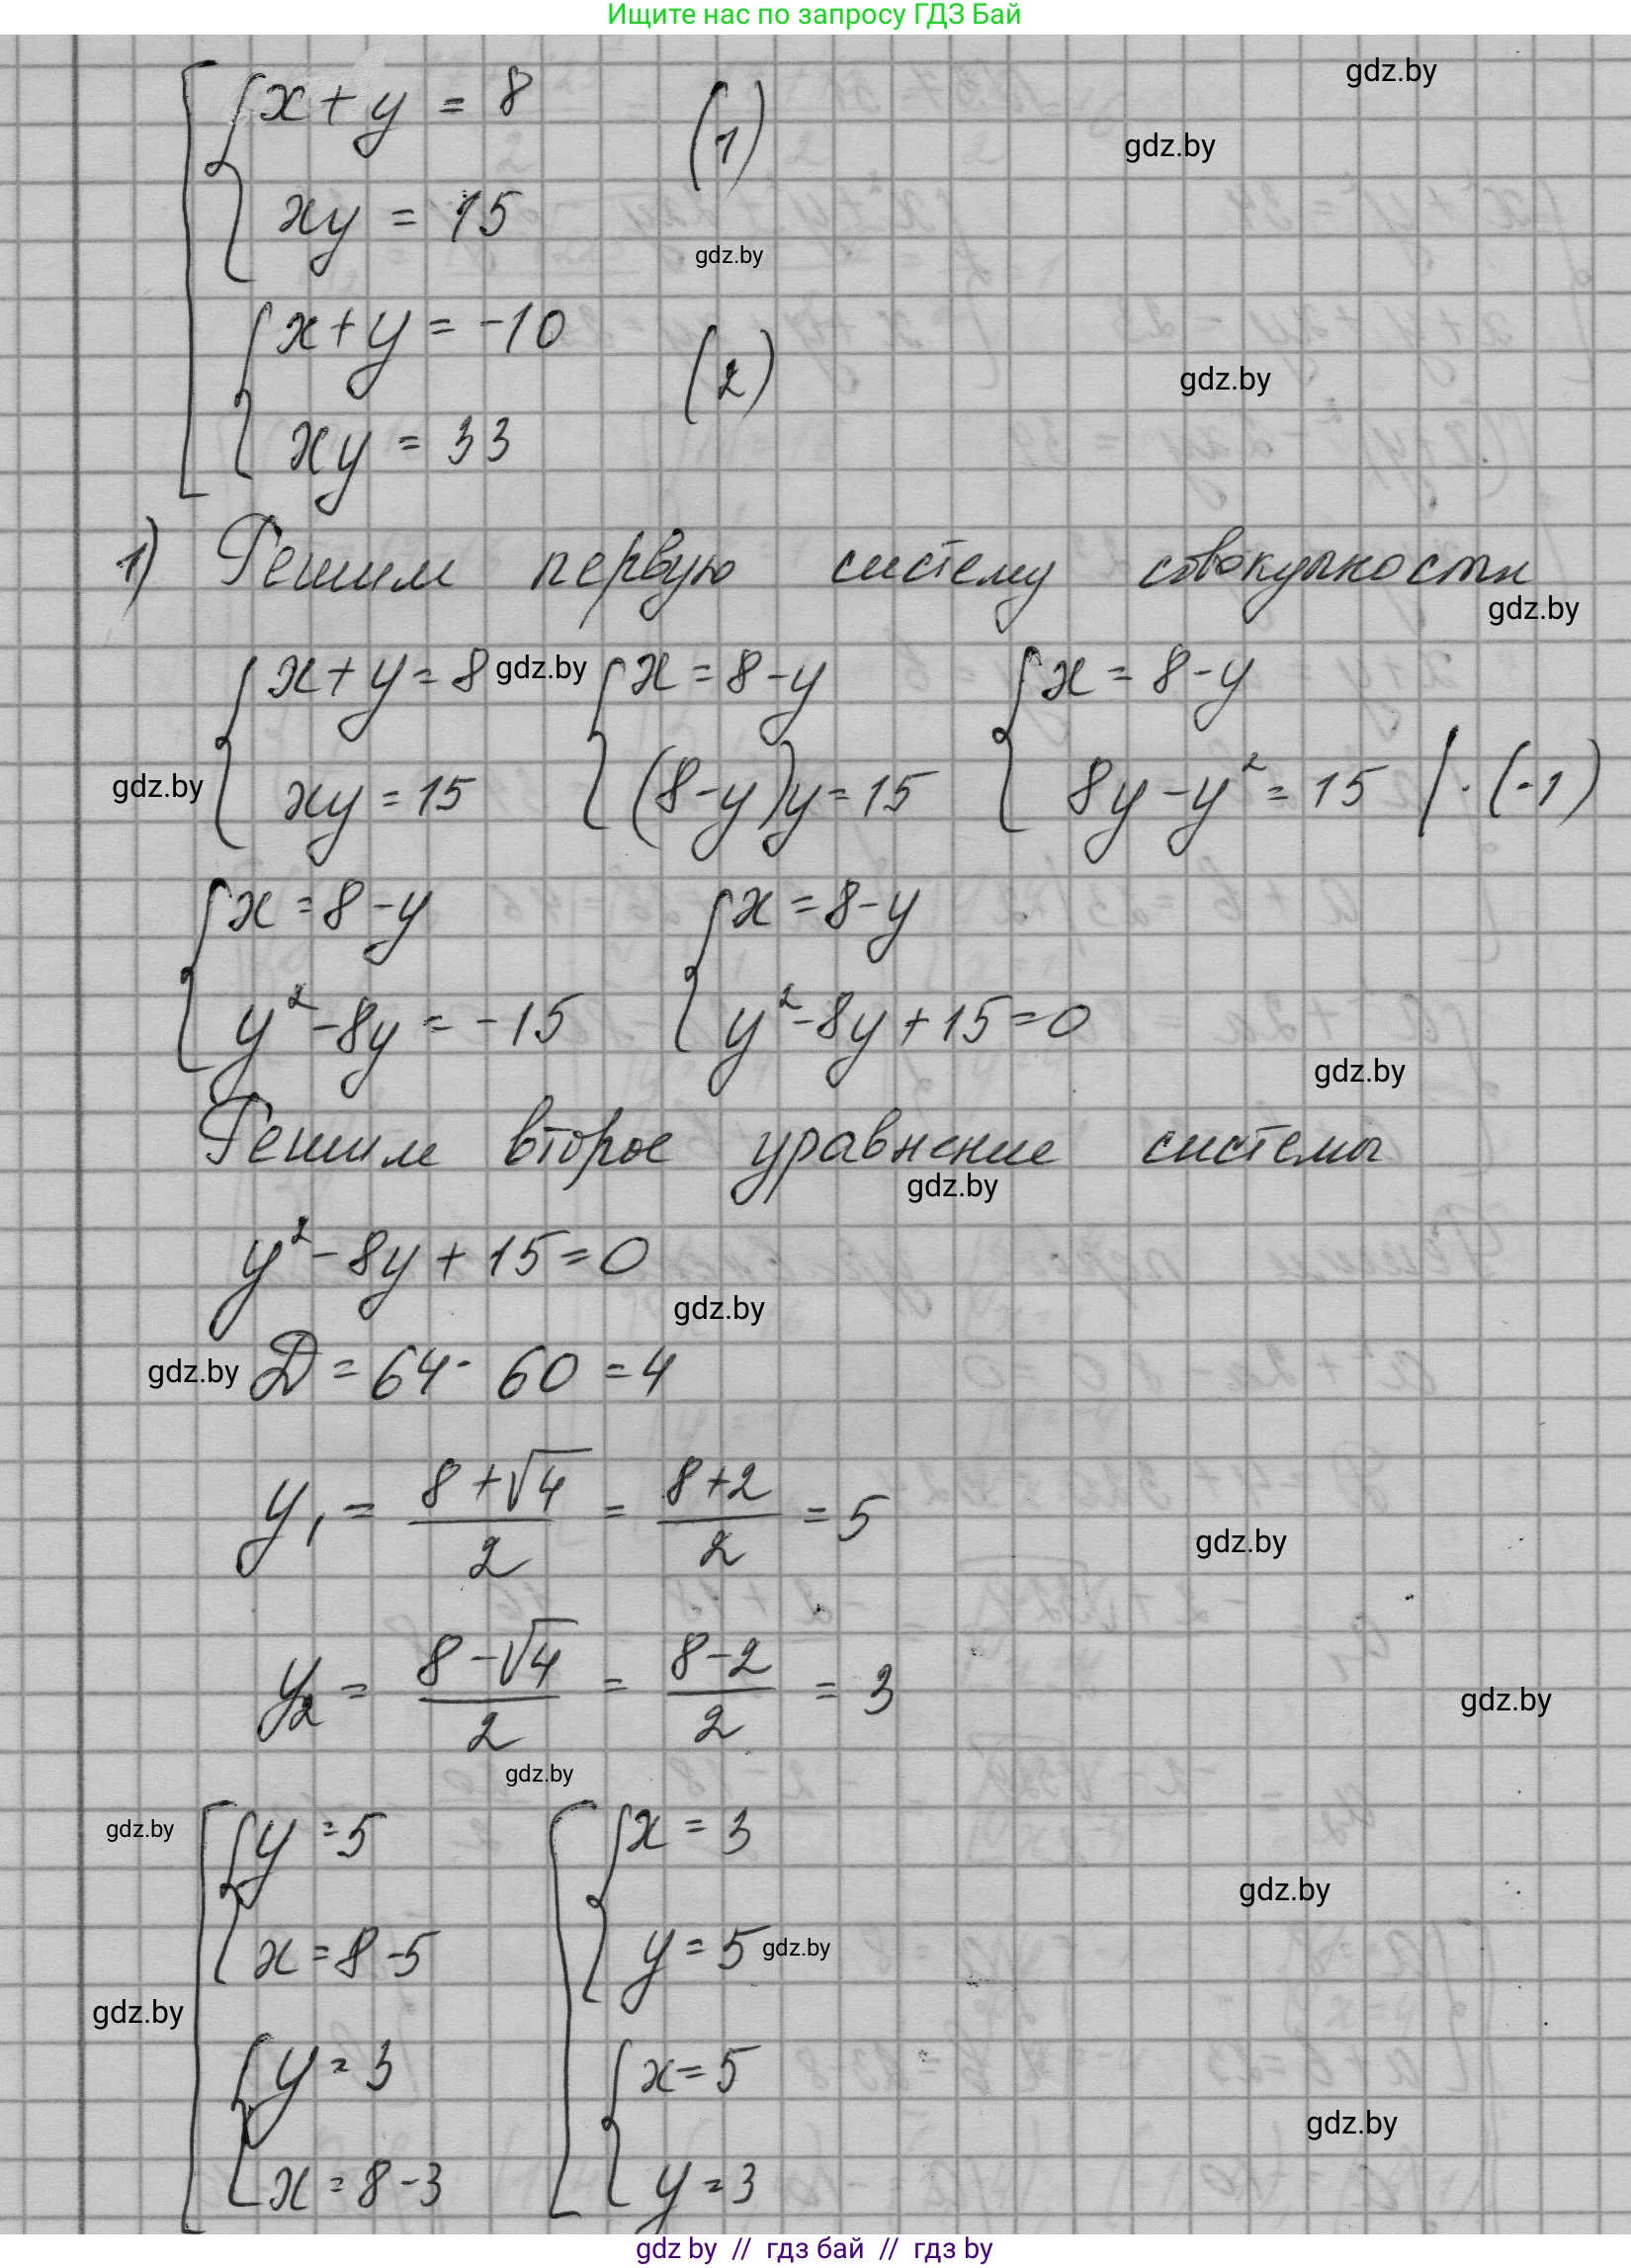 Ищите нас по запросу ГДЗ Бай
gdz.by
x + y = 8 (1)
gdz.by
xy = 15
gdz.by
x + y = -10 (2)
gdz.by
xy = 33
1) Решим первую систему совокупности
gdz.by
x + y = 8 gdz.by x = 8 - y x = 8 - y
gdz.by xy = 15 (8 - y)y = 15 8y - y² = 15 | · (-1)
x = 8 - y x = 8 - y
y² - 8y = -15 y² - 8y + 15 = 0
gdz.by
Решим второе уравнение системы
gdz.by
y² - 8y + 15 = 0
gdz.by
gdz.by D = 64 - 60 = 4
y₁ = (8 + √4)/2 = (8 + 2)/2 = 5
gdz.by
y₂ = (8 - √4)/2 = (8 - 2)/2 = 3
gdz.by
gdz.by
gdz.by y = 5 x = 3
gdz.by
x = 8 - 5 y = 5 gdz.by
gdz.by
y = 3 x = 5
gdz.by
x = 8 - 3 y = 3
gdz by // гдз бай // гдз by